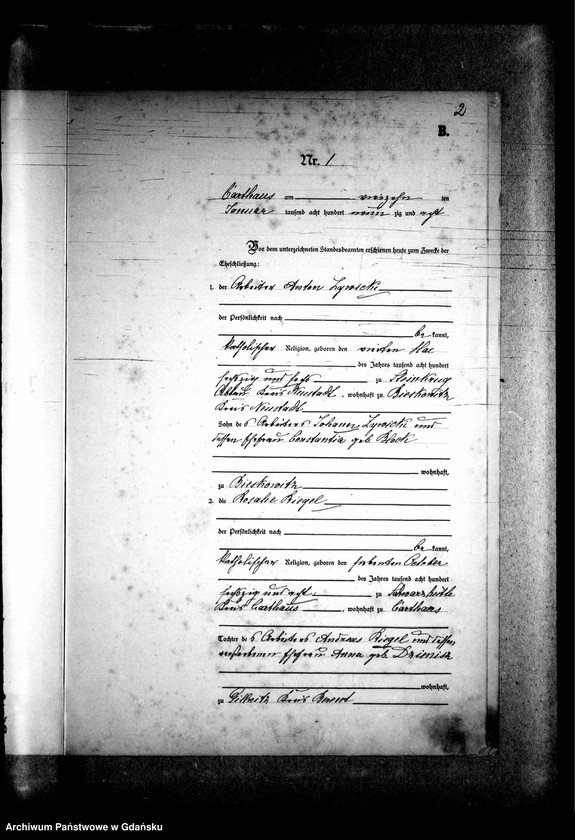 2
B.
Nr. 1
Carthaus am vierzehn ten
Januar tausend acht hundert neun zig und acht
Vor dem unterzeichneten Standesbeamten erschienen heute zum Zwecke der
Eheschließung:
1. der Arbeiter Anton Zywicki
der Persönlichkeit nach
be kannt,
katholischer Religion, geboren den vierten Mai
des Jahres tausend acht hundert
sechszig und sechs zu Steinkrug
Abbau Kreis Neustadt, wohnhaft zu Bieskowitz
Kreis Neustadt
Sohn des Arbeiters Johann Zywicki und
dessen Ehefrau Constantia geb. Block
wohnhaft,
zu Bieskowitz
2. die Rosalie Kiegel
der Persönlichkeit nach
be kannt,
katholischer Religion, geboren den siebenten October
des Jahres tausend acht hundert
sechszig und acht zu
Kreis Carthaus, wohnhaft zu Carthaus
Tochter des Arbeiters Andreas und dessen
verstorbenen Ehefrau Anna geb.
wohnhaft,
zu Kreis Berent
Archiwum Państwowe w Gdańsku